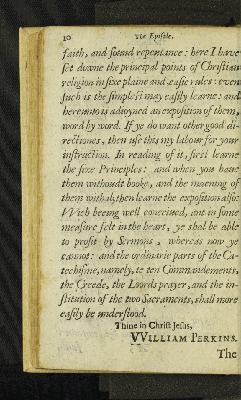 10 The Epistle.
faith, and sound repentance: here I have
set downe the principal points of Christian
religion in sixe plaine and easie rules: even
such is the simplest may easily learne: and
hereunto is adioyned an exposition of them,
word by word. If ye do want other good di-
rections, then use this my labour for your
instruction. In reading of it, first learne
the sixe Principles: and when you have
them without booke, and the meening of
them withal, then learne the exposition also:
Wich beeing well conceiued, ant in some
measure felt in the heart, ye shal be able
to profit by Sermons, whereas now ye
cannot: and the ordinarie parts of the Ca-
techisme, namely, te ten Commandements,
the Creede, the Loords prayer, and the in-
stitution of the two Sacraments, shall more
easily be understood.
Thine in Christ Jesus,
VVILLIAM PERKINS.
The